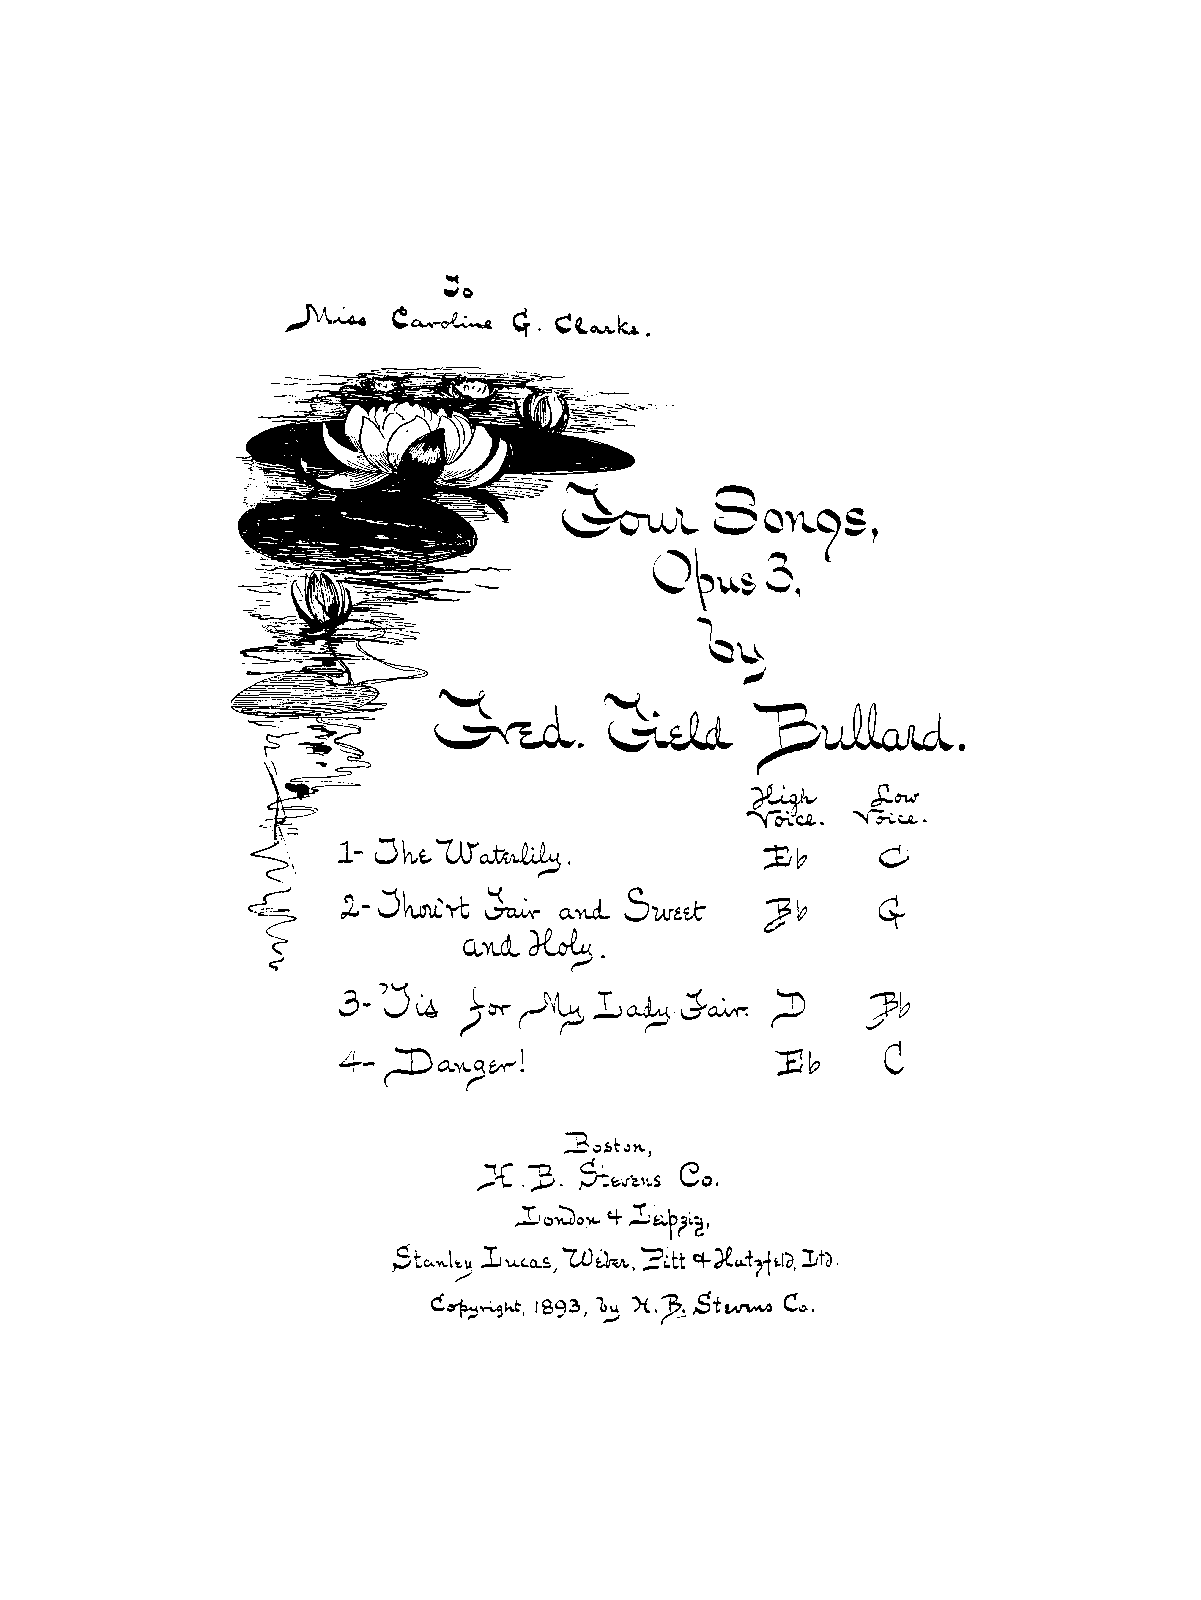 To
Miss Caroline G. Clarke.
Four Songs,
Opus 3,
by
Fred. Field Bullard.
High Low
Voice. Voice.
1- The Waterlily. E♭ C
2- Thou'rt Fair and Sweet B♭ G
and Holy.
3- 'Tis for My Lady Fair. D B♭
4- Danger! E♭ C
Boston,
H. B. Stevens Co.
London & Leipzig,
Stanley Lucas, Weber, Pitt & Hatzfeld, Ltd.
Copyright, 1893, by H. B. Stevens Co.